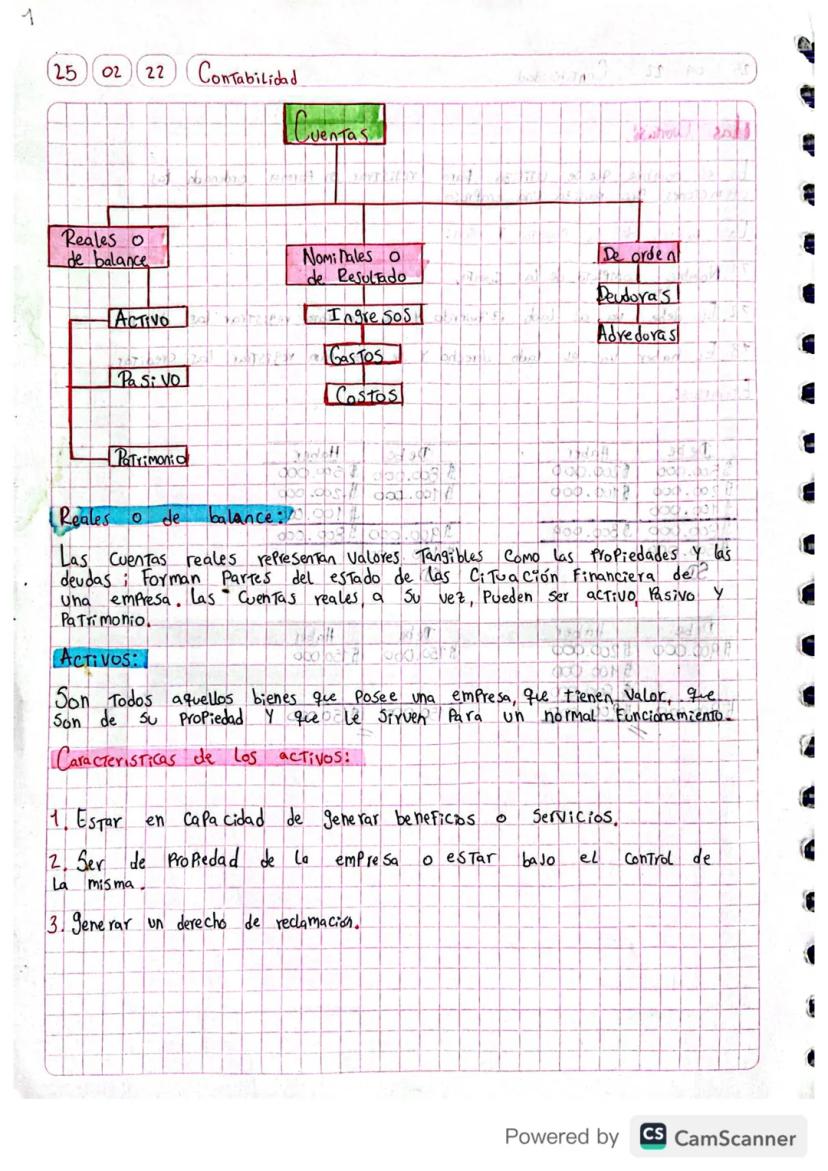 1
25 02 22 Contabilidad
Cuentas
Reales o
de balance
Nominales o
de Resultado
De orden
Activo
Ingresos
Deudoras
Gastos
Adredoras
Pasivo
Costos
Patrimonio
Reales o de balance:
Las cuentas reales representan valores Tangibles como las propiedades y las
deudas ; Forman Partes del estado de las Cituación Financiera de
una empresa. Las cuentas reales, a su vez, Pueden ser activo, Pasivo y
Patrimonio.
Activos:
Son Todos aquellos bienes que posee una empresa, que tienen valor, que
son de su propiedad y que le sirven Para un normal Funcionamiento.
Caracteristicas de los activos:
1. Estar en capacidad de generar beneficios o servicios.
2. Ser de Propiedad de la empresa o estar bajo el control de
la misma.
3. generar un derecho de reclamación.
Powered by CS CamScanner